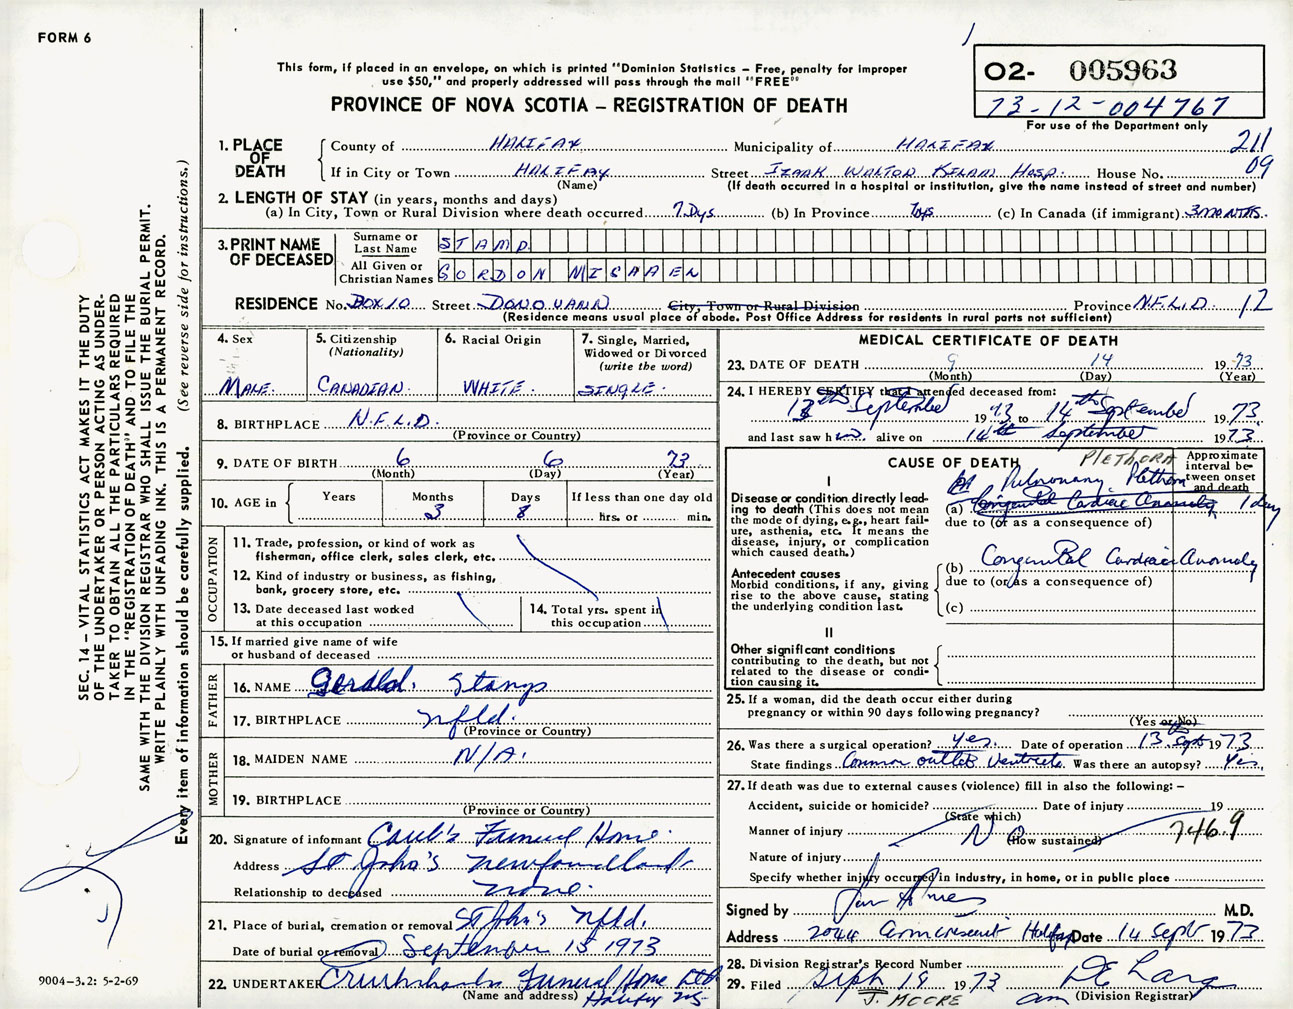 FORM 6
This form, if placed in an envelope, on which is printed "Dominion Statistics – Free, penalty for improper
use $50," and properly addressed will pass through the mail "FREE"
PROVINCE OF NOVA SCOTIA – REGISTRATION OF DEATH
O2- 005963
73-12-004767
For use of the Department only
211
09
1. PLACE OF DEATH
County of HALIFAX Municipality of HALIFAX
If in City or Town HALIFAX Street IZAAK WALTON KILLAM HOSP. House No.
(Name) (If death occurred in a hospital or institution, give the name instead of street and number)
2. LENGTH OF STAY (in years, months and days)
(a) In City, Town or Rural Division where death occurred 7 Dys (b) In Province 7 Dys (c) In Canada (if immigrant) 3 MONTHS.
3. PRINT NAME OF DECEASED
Surname or Last Name STAMP
All Given or Christian Names GORDON
RESIDENCE No. BOX 10 Street DONOVANN City, Town or Rural Division Province N.F.L.D. 12
(Residence means usual place of abode. Post Office Address for residents in rural parts not sufficient)
4. Sex
MALE.
5. Citizenship
(Nationality)
CANADIAN.
6. Racial Origin
WHITE.
7. Single, Married,
Widowed or Divorced
(write the word)
SINGLE.
8. BIRTHPLACE N.F.L.D.
(Province or Country)
9. DATE OF BIRTH 6 6 73
(Month) (Day) (Year)
10. AGE in Years Months 3 Days 8 If less than one day old
hrs. or min.
OCCUPATION
11. Trade, profession, or kind of work as
fisherman, office clerk, sales clerk, etc.
12. Kind of industry or business, as fishing,
bank, grocery store, etc.
13. Date deceased last worked
at this occupation
14. Total yrs. spent in
this occupation
15. If married give name of wife
or husband of deceased
FATHER
16. NAME Gerald. Stamp
17. BIRTHPLACE Nfld.
(Province or Country)
MOTHER
18. MAIDEN NAME N/A.
19. BIRTHPLACE
(Province or Country)
20. Signature of informant Caul's Funeral Home.
Address St John's Newfoundland
Relationship to deceased None.
21. Place of burial, cremation or removal St John's Nfld.
Date of burial or removal September 15 1973
22. UNDERTAKER Cruikshanks Funeral Home Ltd
(Name and address) Halifax NS
MEDICAL CERTIFICATE OF DEATH
23. DATE OF DEATH 9 14 1973
(Month) (Day) (Year)
24. I HEREBY CERTIFY that I attended deceased from:
13th September 1973 to 14th September 1973
and last saw him alive on 14th September 1973
CAUSE OF DEATH
PLETHORA
Approximate interval between onset and death
I
Disease or condition directly leading to death (This does not mean the mode of dying, e.g., heart failure, asthenia, etc. It means the disease, injury, or complication which caused death.)
Pulmonary Plethora
(a) Congenital Cardiac Anomaly 1 day
due to (or as a consequence of)
Antecedent causes
Morbid conditions, if any, giving
rise to the above cause, stating
the underlying condition last.
(b) Congenital Cardiac Anomaly
due to (or as a consequence of)
(c)
II
Other significant conditions
contributing to the death, but not
related to the disease or condition causing it.
25. If a woman, did the death occur either during
pregnancy or within 90 days following pregnancy?
(Yes or No)
26. Was there a surgical operation? yes. Date of operation 13th Sept 1973
State findings Common outlet Ventricle. Was there an autopsy? Yes.
27. If death was due to external causes (violence) fill in also the following: –
Accident, suicide or homicide? Date of injury 19
(State which)
Manner of injury 746.9
(How sustained)
Nature of injury
Specify whether injury occurred in industry, in home, or in public place
Signed by M.D.
Address 2044 Armcrescent Halifax Date 14 Sept 1973
28. Division Registrar's Record Number
29. Filed Sept 19 1973
J. MOORE
(Division Registrar)
SEC. 14 – VITAL STATISTICS ACT MAKES IT THE DUTY
OF THE UNDERTAKER OR PERSON ACTING AS UNDERTAKER TO OBTAIN ALL THE PARTICULARS REQUIRED
IN THE "REGISTRATION OF DEATH" AND TO FILE THE
SAME WITH THE DIVISION REGISTRAR WHO SHALL ISSUE THE BURIAL PERMIT.
WRITE PLAINLY WITH UNFADING INK. THIS IS A PERMANENT RECORD.
Every item of information should be carefully supplied. (See reverse side for instructions.)
9004-3.2: 5-2-69